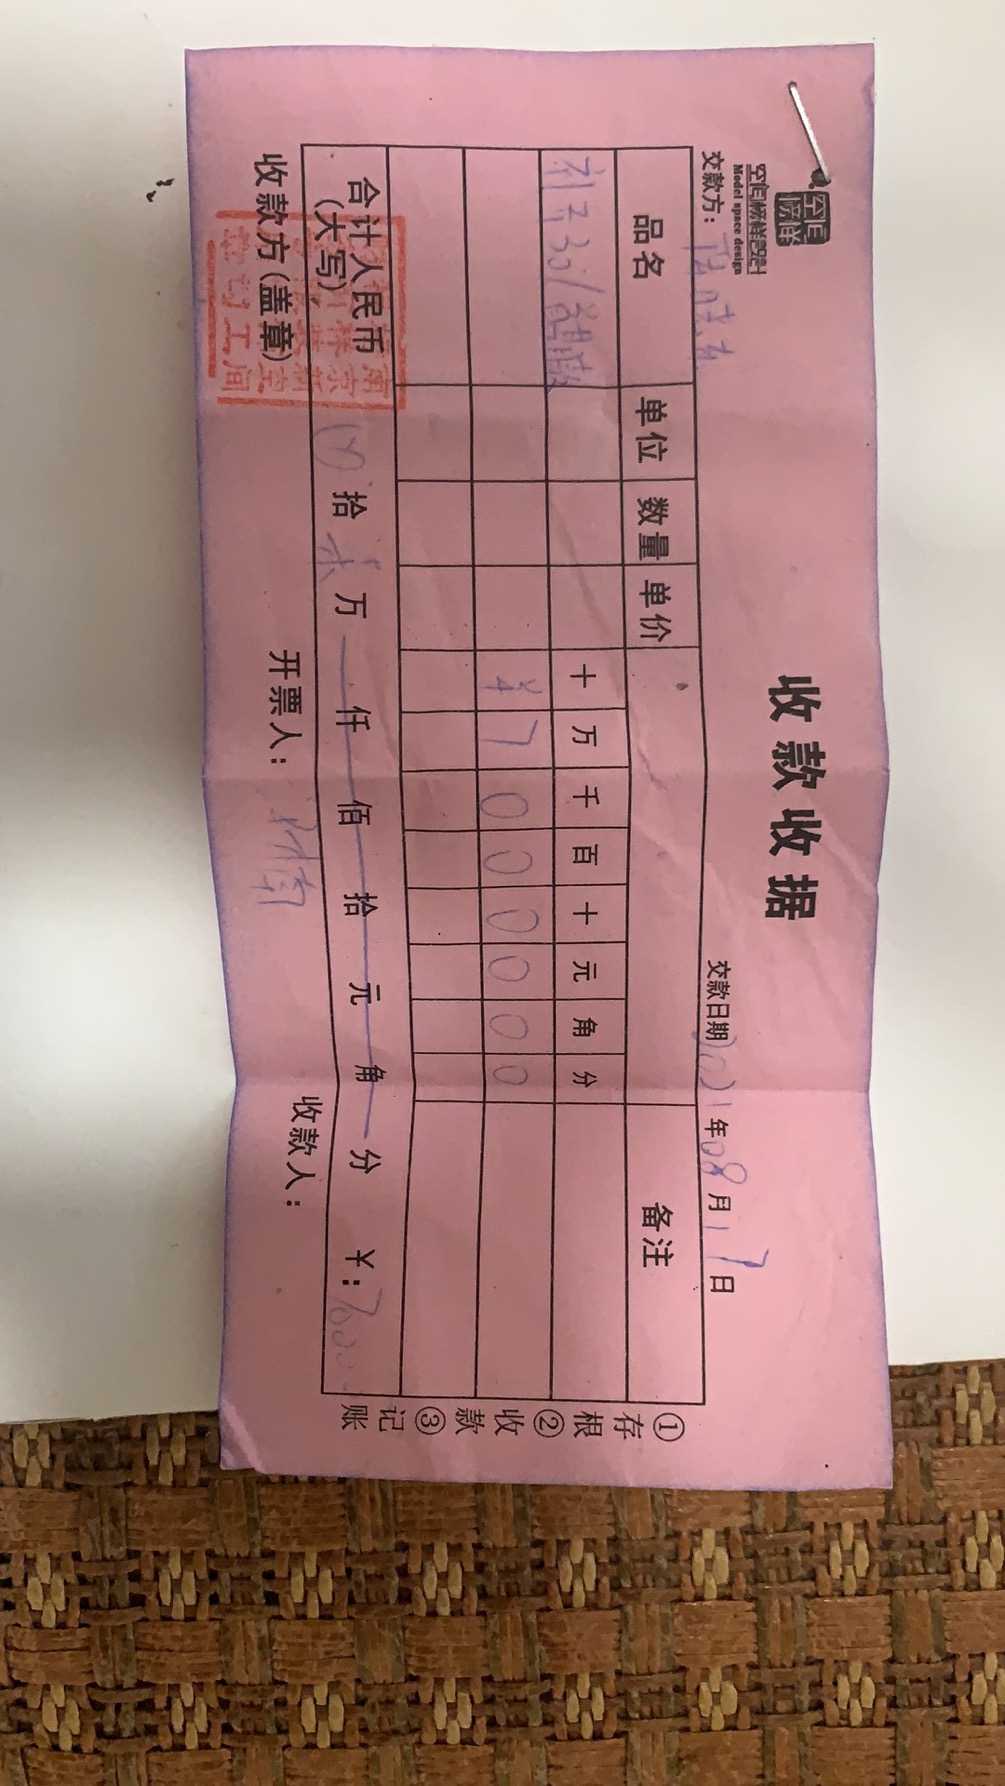 空间榜样
空间榜样设计
Model space design
收款收据
交款方：
交款日期 2021年08月17日
品名 单位 数量 单价 十 万 千 百 十 元 角 分 备注
¥ 7 0 0 0 0 0 0
合计人民币
(大写) 拾 柒 万 仟 佰 拾 元 角 分 ¥:
收款方(盖章) 开票人: 收款人:
①存根②收款③记账